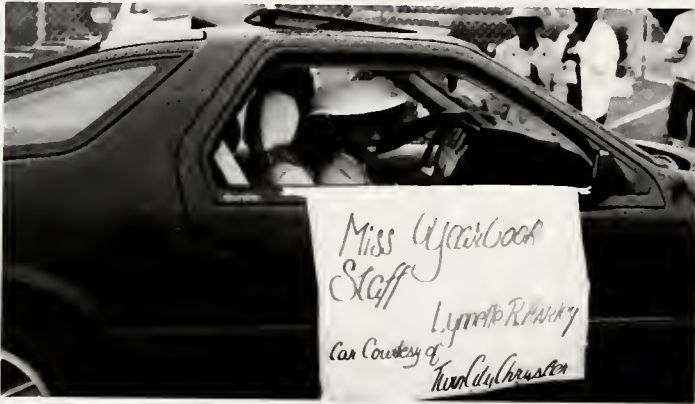 Miss Yearbook
Staff
Lynette R.
Car Courtesy of
Twin City Chrysler